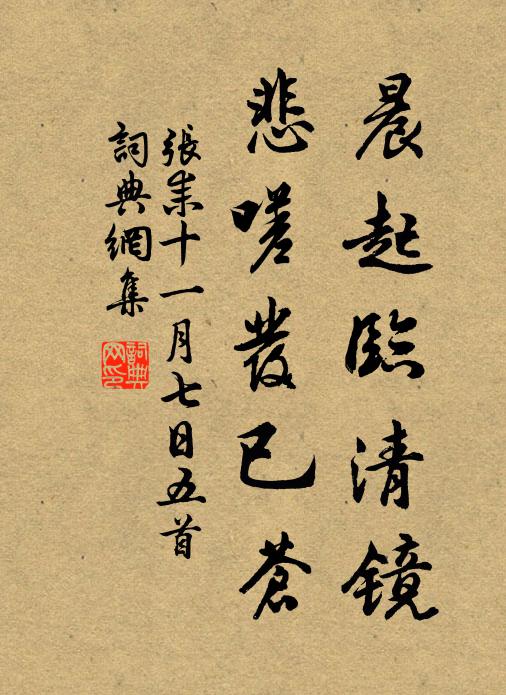 晨起臨清鏡
悲嗟發已蒼
張耒十一月七日五首
詞典網集
詞典網印